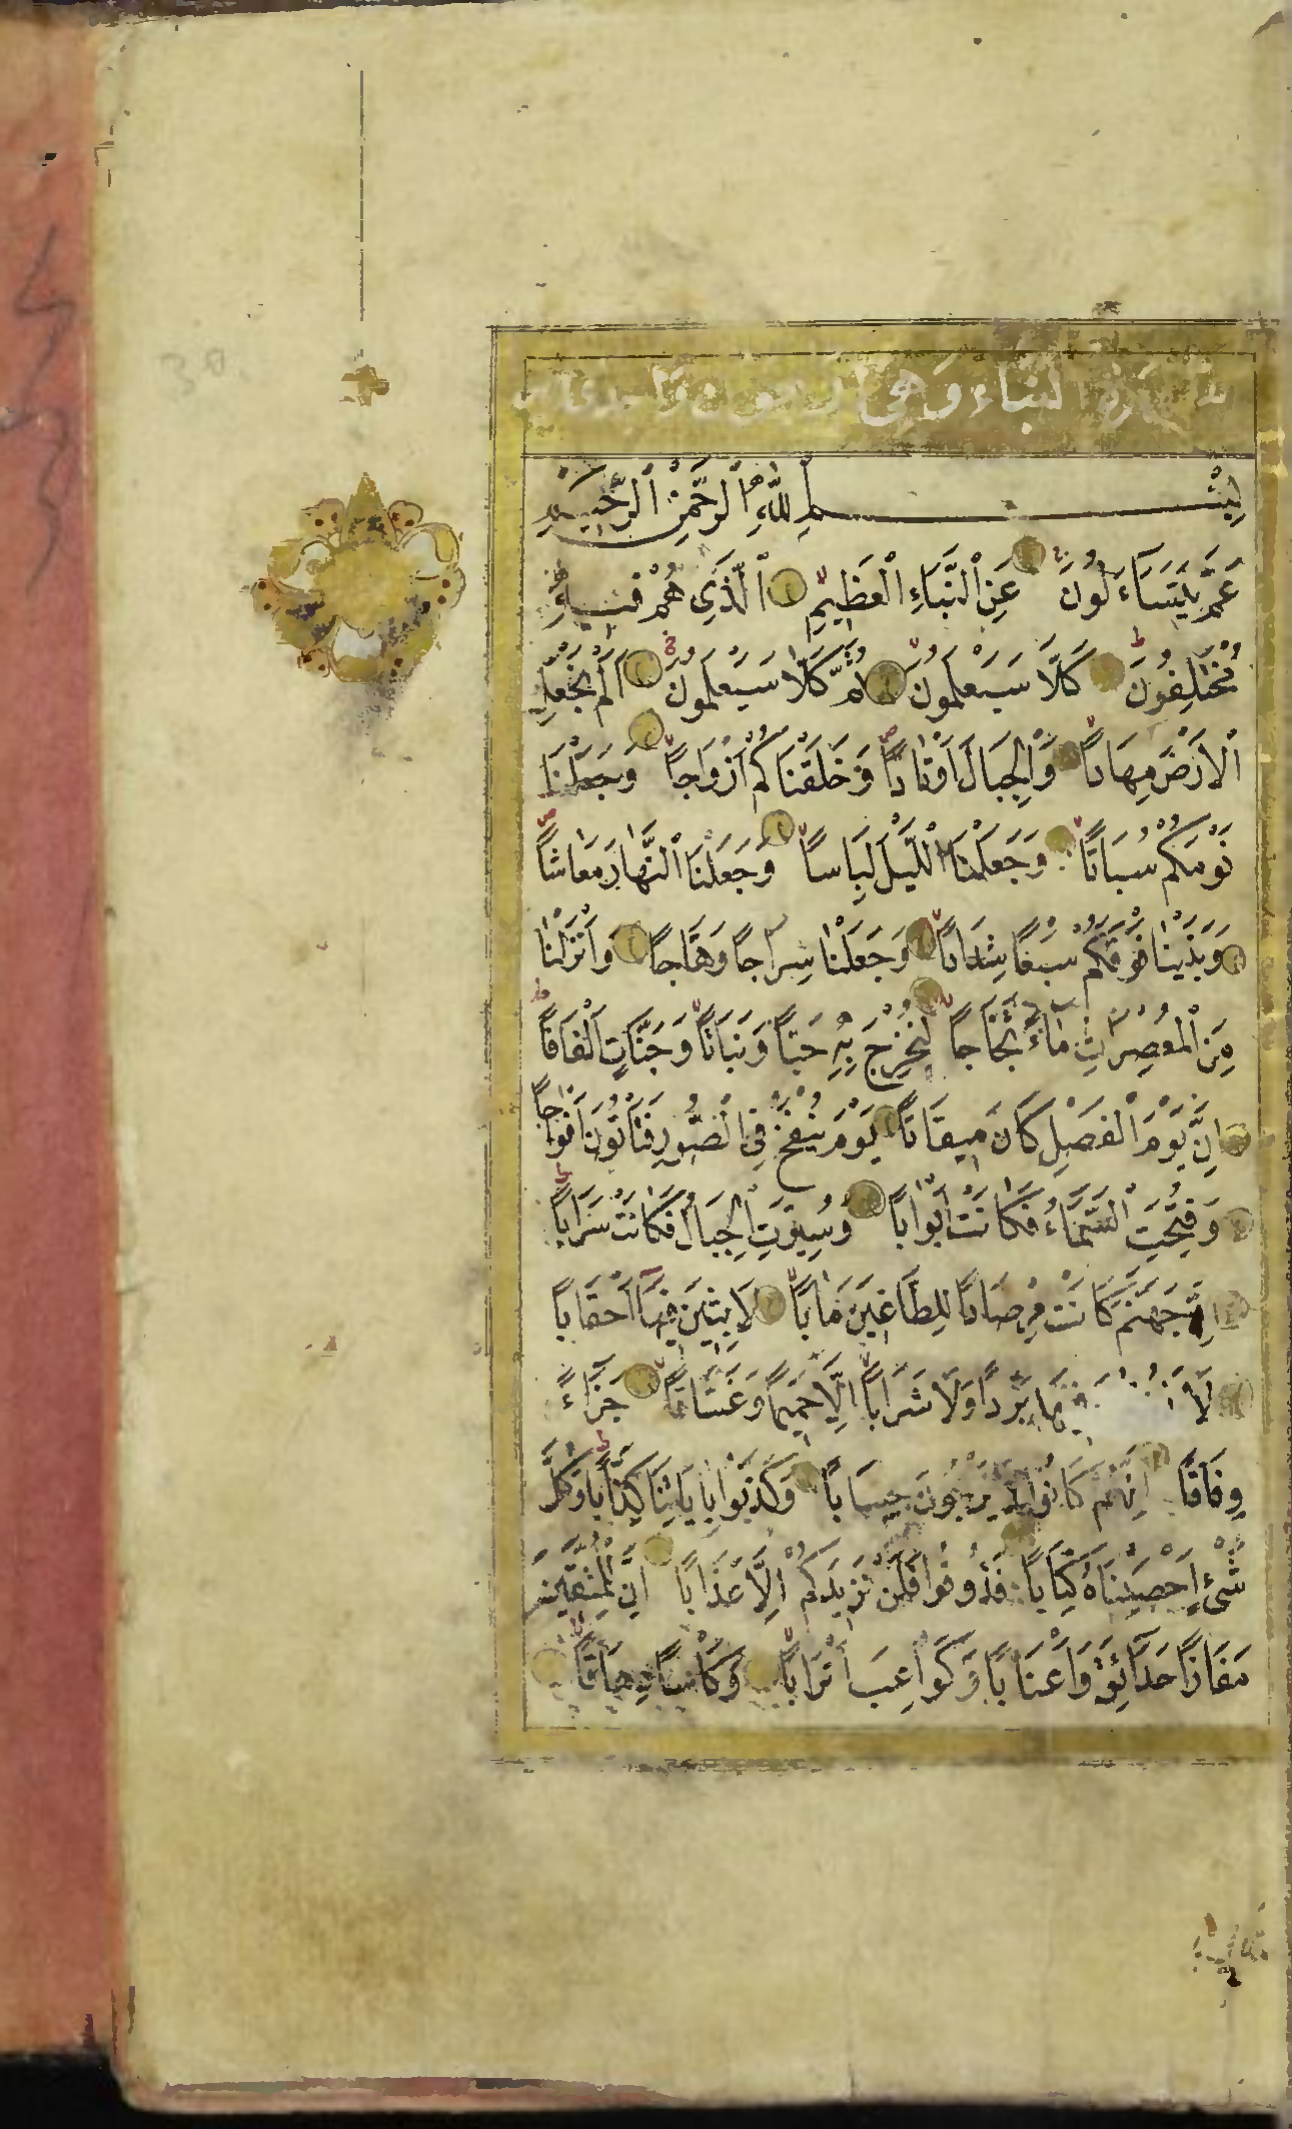 سورة النباء وهى
بِسْمِ اللَّهِ الرَّحْمٰنِ الرَّحِيمِ
عَمَّ يَتَسَاءَلُونَ عَنِ النَّبَاءِ الْعَظِيمِ الَّذِى هُمْ فِيهِ
مُخْتَلِفُونَ كَلَّا سَيَعْلَمُونَ ثُمَّ كَلَّا سَيَعْلَمُونَ اَلَمْ نَجْعَلِ
الْاَرْضَ مِهَادًا وَالْجِبَالَ اَوْتَادًا وَخَلَقْنَاكُمْ اَزْوَاجًا وَجَعَلْنَا
نَوْمَكُمْ سُبَاتًا وَجَعَلْنَا اللَّيْلَ لِبَاسًا وَجَعَلْنَا النَّهَارَ مَعَاشًا
وَبَنَيْنَا فَوْقَكُمْ سَبْعًا شِدَادًا وَجَعَلْنَا سِرَاجًا وَهَّاجًا وَاَنْزَلْنَا
مِنَ الْمُعْصِرَاتِ مَاءً ثَجَّاجًا لِنُخْرِجَ بِهِ حَبًّا وَنَبَاتًا وَجَنَّاتٍ اَلْفَافًا
اِنَّ يَوْمَ الْفَصْلِ كَانَ مِيقَاتًا يَوْمَ يُنْفَخُ فِى الصُّورِ فَتَأْتُونَ اَفْوَاجًا
وَفُتِحَتِ السَّمَاءُ فَكَانَتْ اَبْوَابًا وَسُيِّرَتِ الْجِبَالُ فَكَانَتْ سَرَابًا
اِنَّ جَهَنَّمَ كَانَتْ مِرْصَادًا لِلطَّاغِينَ مَاٰبًا لَابِثِينَ فِيهَا اَحْقَابًا
لَا فِيهَا بَرْدًا وَلَا شَرَابًا اِلَّا حَمِيمًا وَغَسَّاقًا جَزَاءً
وِفَاقًا اِنَّهُمْ كَانُوا لَا يَرْجُونَ حِسَابًا وَكَذَّبُوا بِاٰيَاتِنَا كِذَّابًا وَكُلَّ
شَىْءٍ اَحْصَيْنَاهُ كِتَابًا فَذُوقُوا فَلَنْ نَزِيدَكُمْ اِلَّا عَذَابًا اِنَّ لِلْمُتَّقِينَ
مَفَازًا حَدَائِقَ وَاَعْنَابًا وَكَوَاعِبَ اَتْرَابًا وَكَاْسًا دِهَاقًا